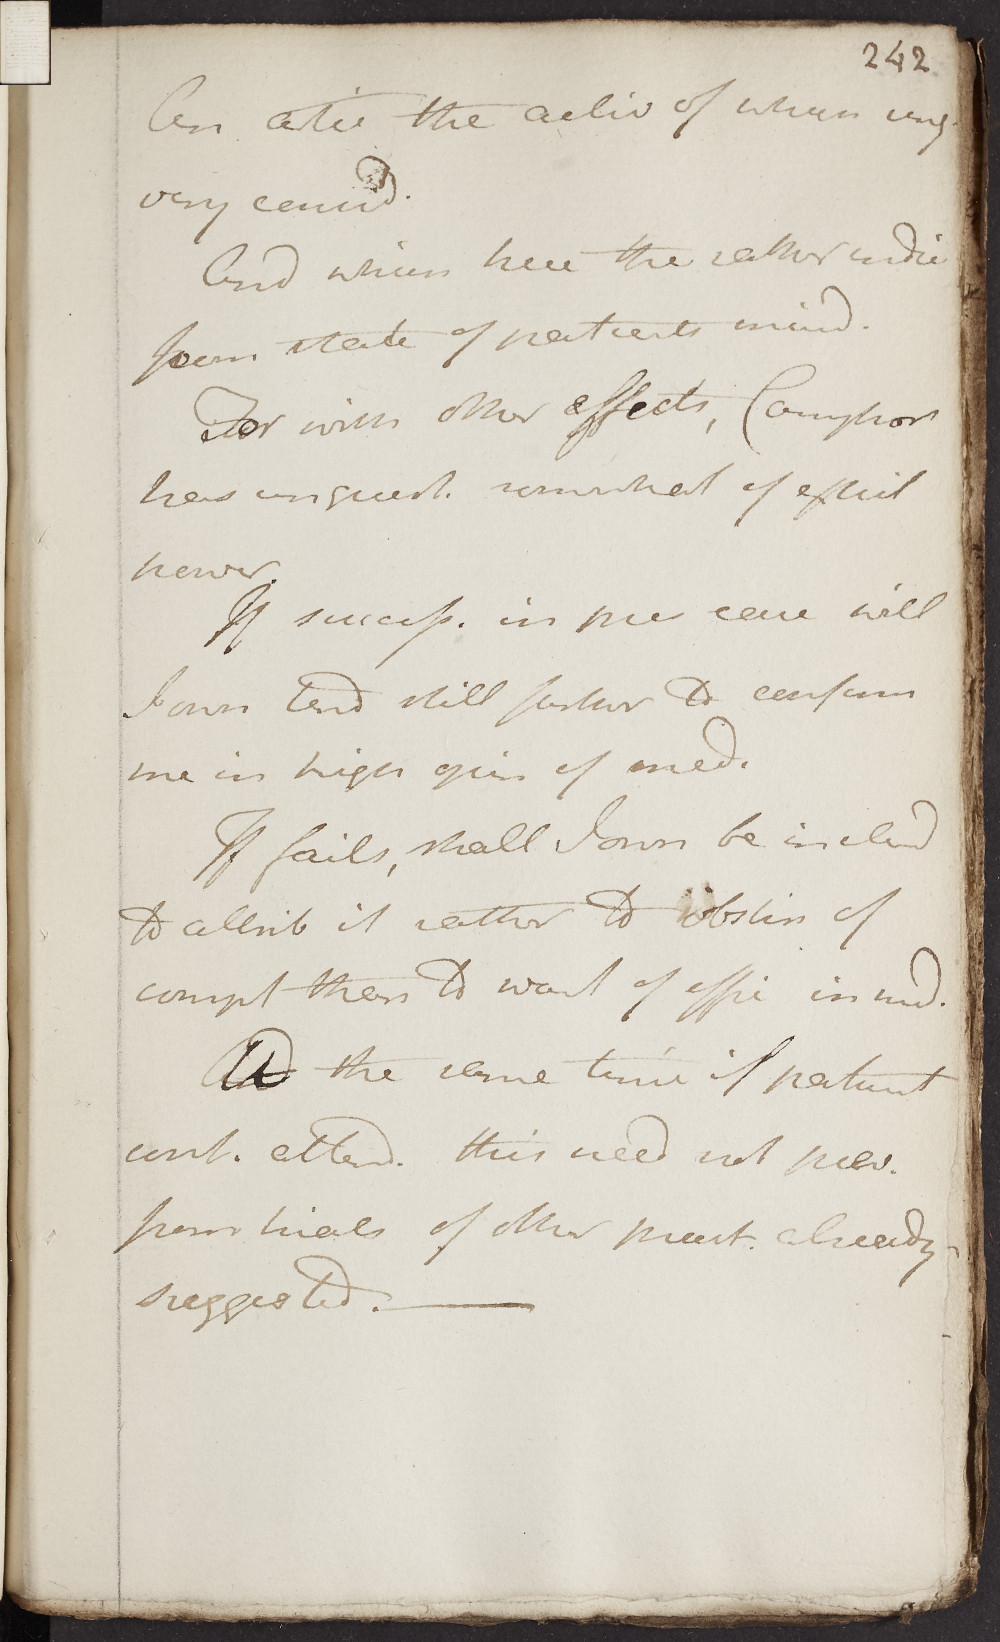 242
An artic the activ of which ung.
very consid.
And which here the rather indic
from state of patients mind.
For with other effects, Camphor
has unquest. somewhat of exhil
power.
If success. in pres case will
I own tend still further to confirm
me in high opin of med.
If fails, shall I own be inclind
to attrib it rather to obstin of
compt than to want of effic in med.
At the same time if patient
cont. attend. this need not prev.
from trials of other pract. already
suggested.